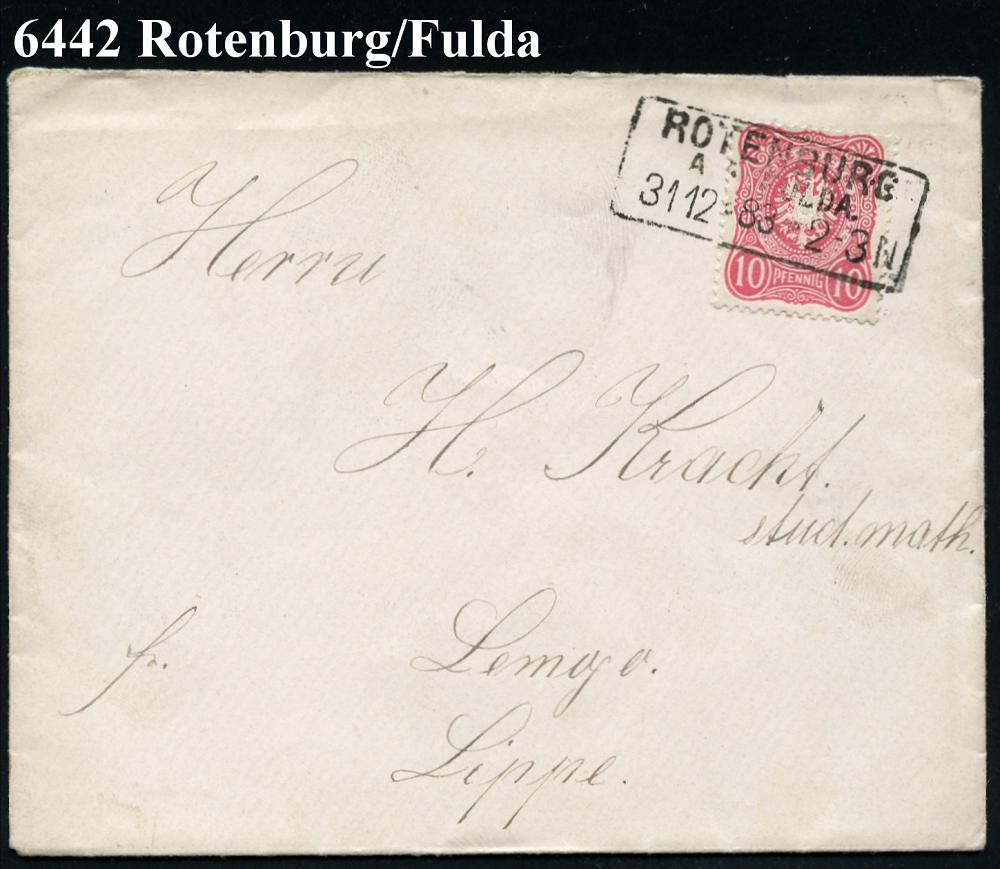 6442 Rotenburg/Fulda
ROTENBURG
A. FULDA.
31 12 83 2-3 N
10 PFENNIG 10
Herrn
H. Kracht.
stud. math.
fr.
Lemgo.
Lippe.